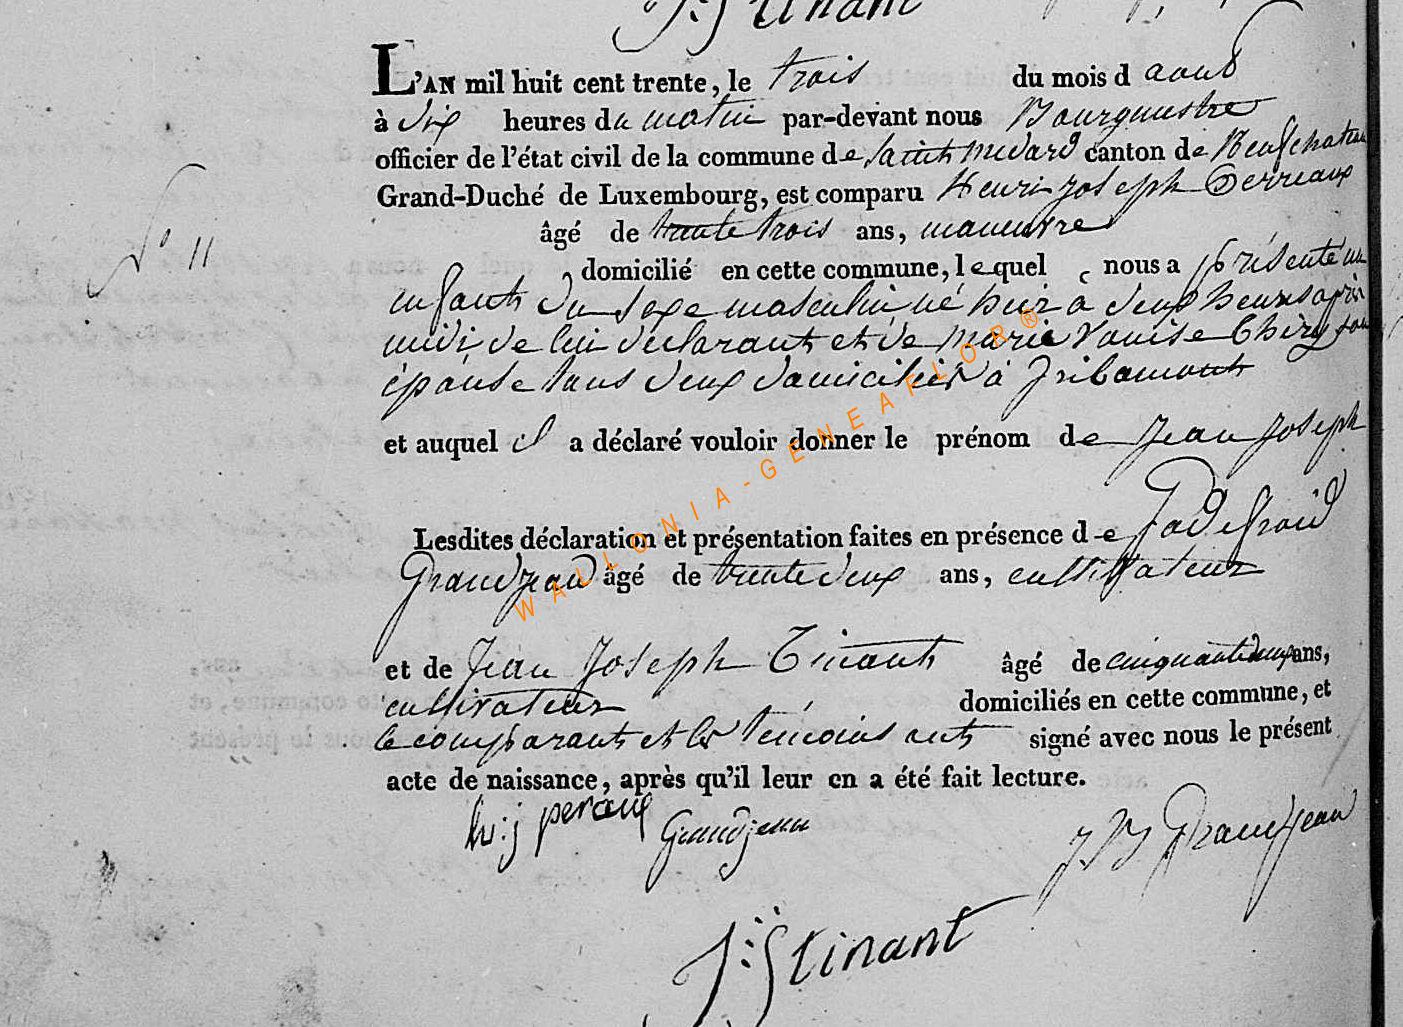 J: J tinant
L'AN mil huit cent trente, le trois du mois d aout
à Six heures du matin par-devant nous Bourgmestre
officier de l'état civil de la commune de saint medard canton de Neufchateau
Grand-Duché de Luxembourg, est comparu Henri joseph Perreaux
N° 11
âgé de trente trois ans, maneuvre
domicilié en cette commune, lequel nous a présenté un
enfant du sexe masculin né hier à deux heures après
midi de lui declarant et de Marie Louise Thiry son
épouse tous deux domiciliés à fribomont
et auquel il a déclaré vouloir donner le prénom de jean joseph
Lesdites déclaration et présentation faites en présence de
Grandjean âgé de trente deux ans, cultivateur
et de Jean Joseph Tinant âgé de cinquante deux ans,
cultivateur domiciliés en cette commune, et
le comparant et les témoins ont signé avec nous le présent
acte de naissance, après qu'il leur en a été fait lecture.
h: j peraux Grandjean J B Grandjean
J: J tinant
WALLONIA-GENEAFLOR®